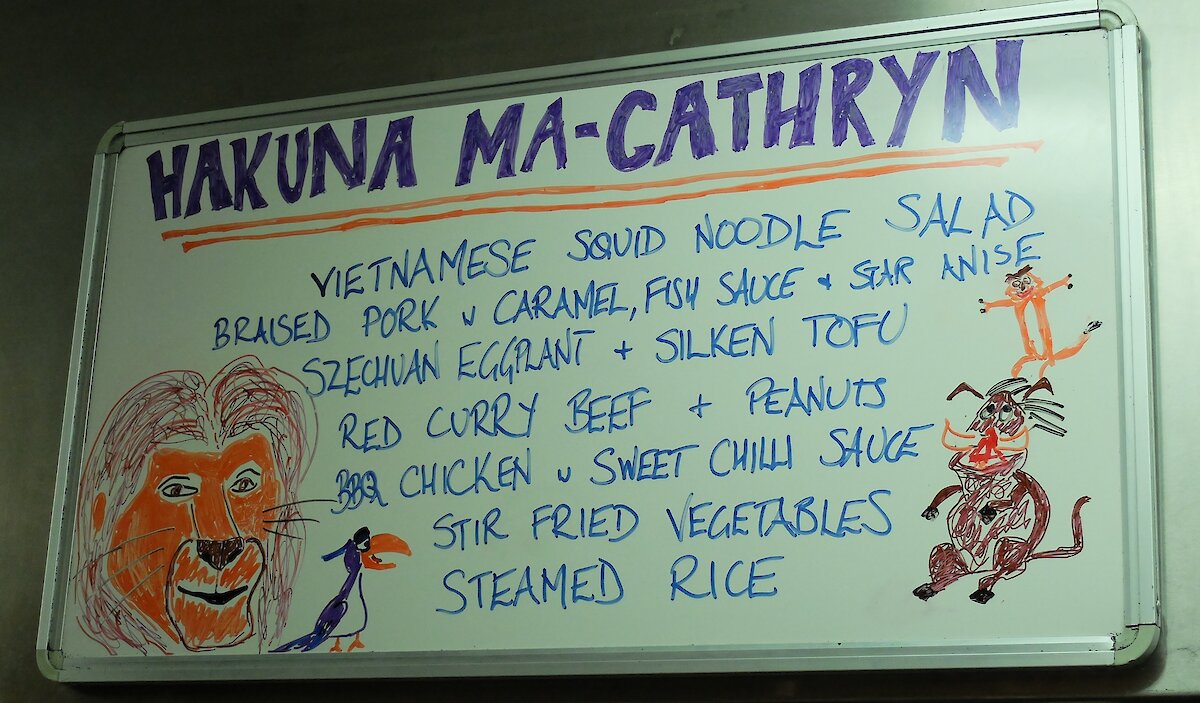 HAKUNA MA-CATHRYN
VIETNAMESE SQUID NOODLE SALAD
BRAISED PORK w CARAMEL, FISH SAUCE + STAR ANISE
SZECHUAN EGGPLANT + SILKEN TOFU
RED CURRY BEEF + PEANUTS
BBQ CHICKEN w SWEET CHILLI SAUCE
STIR FRIED VEGETABLES
STEAMED RICE